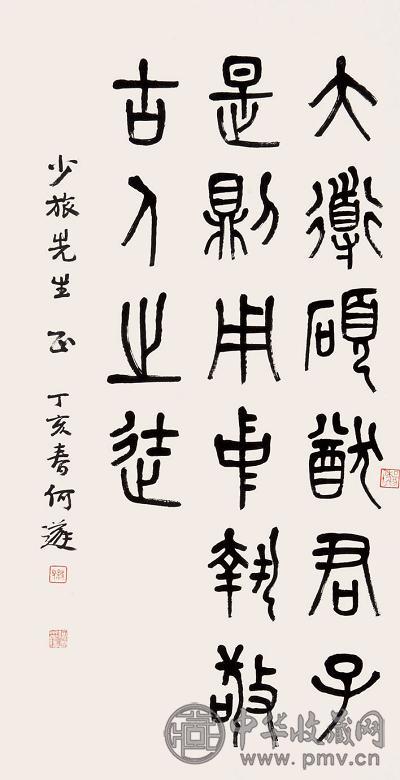 大導碩猷君子
是則用中執敬
古人之徒
少旅先生 正 丁亥春何遂
中华收藏网
www.pmv.cn